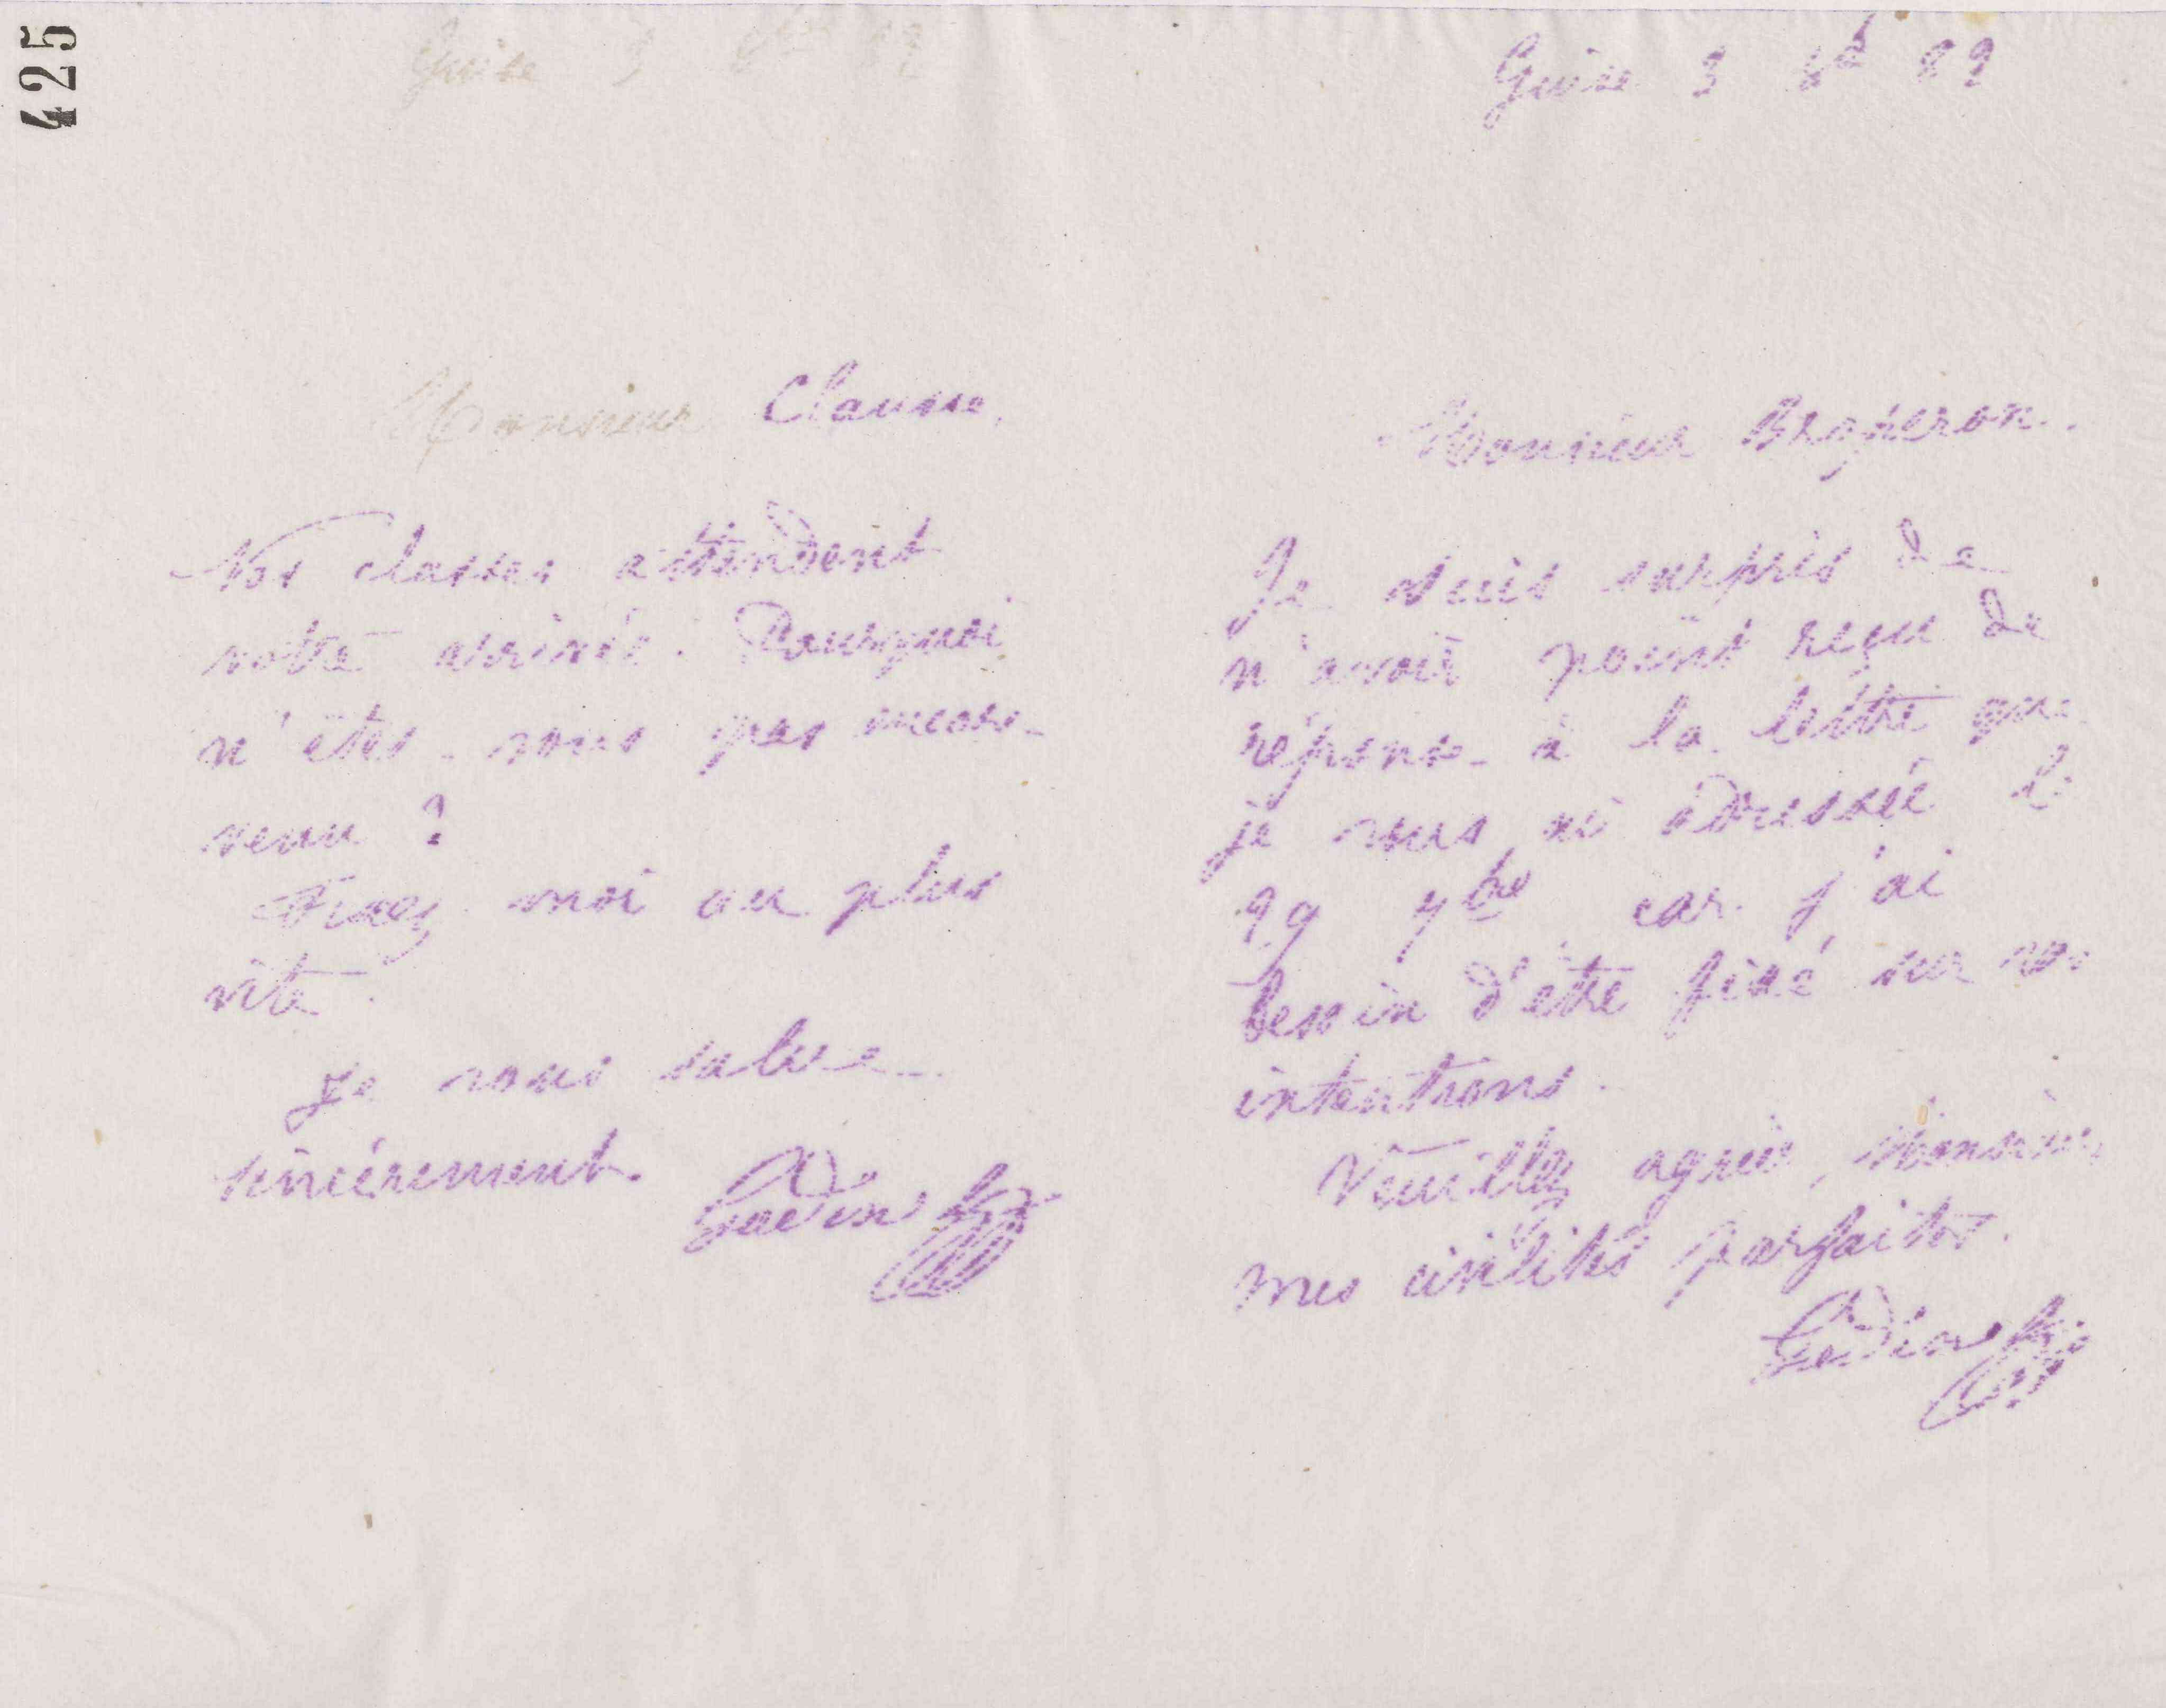 425
Guise 3 8bre 82
Monsieur Clausse,
Nos classes attendent
votre arrivée. Pourquoi
n'êtes-vous pas encore
venu ?
Fixez moi au plus
vite.
Je vous salue
sincèrement.
Godin
Guise 3 8bre 82
Monsieur
Je suis surpris de
n'avoir point reçu de
réponse à la lettre que
je vous ai adressée le
29 7bre car j'ai
besoin d'être fixé sur vos
intentions.
Veuillez agréer, Monsieur,
mes civilités parfaites.
Godin